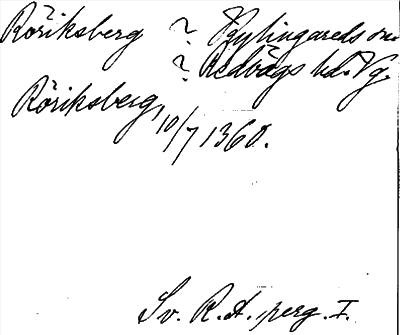 Röriksberg ? Kylingareds sn.
? Redvägs hd. Vg.
Röriksberg, 10/7 1360.
Sv. R.A. perg. I.